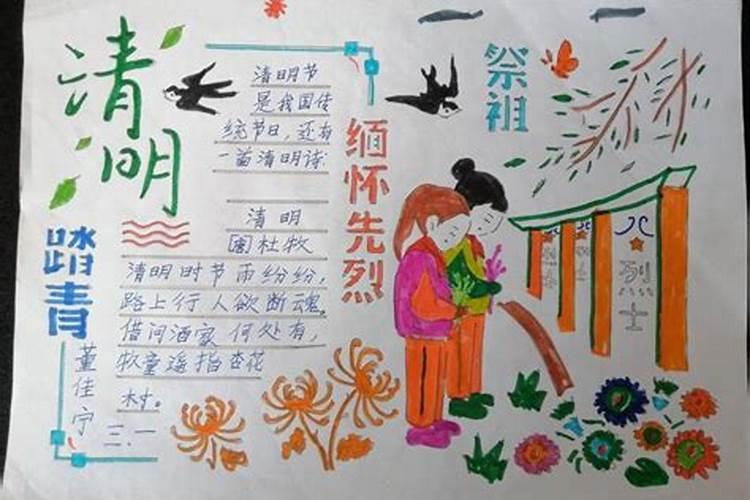 清明
清明节
是我国传
统节日,还有
一首清明诗:
清明
[唐]杜牧
清明时节雨纷纷,
路上行人欲断魂。
借问酒家何处有,
牧童遥指杏花
村。
踏青
董佳宁
三.一
缅怀先烈
祭祖
烈士